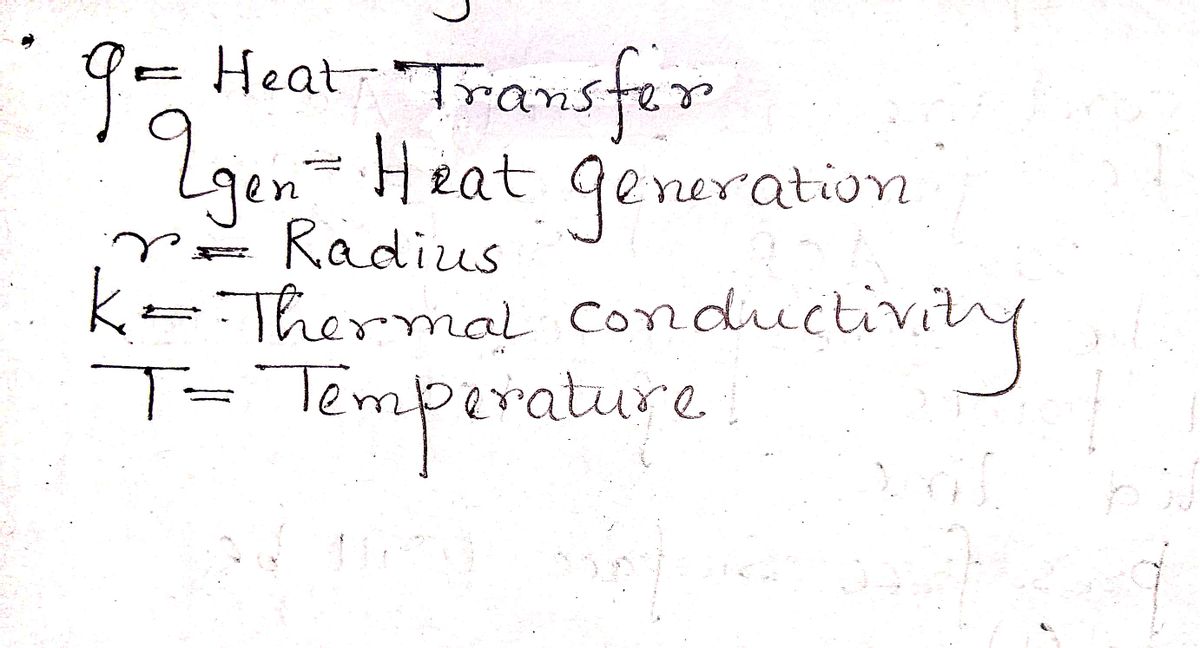 q = Heat Transfer
qgen = Heat generation
r = Radius
k = Thermal conductivity
T = Temperature